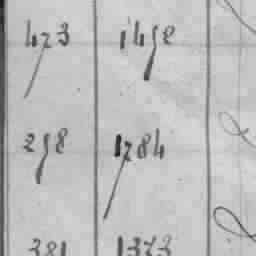 473 1498
298 1784
381 1373